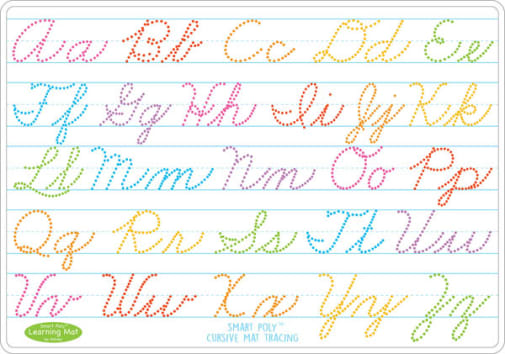 Aa Bb Cc Dd Ee
Ff Gg Hh Ii Jj Kk
Ll Mm Nn Oo Pp
Qq Rr Ss Tt Uu
Vv Ww Xx Yy Zz
SMART POLY™
Learning Mat
SMART POLY™
CURSIVE MAT TRACING